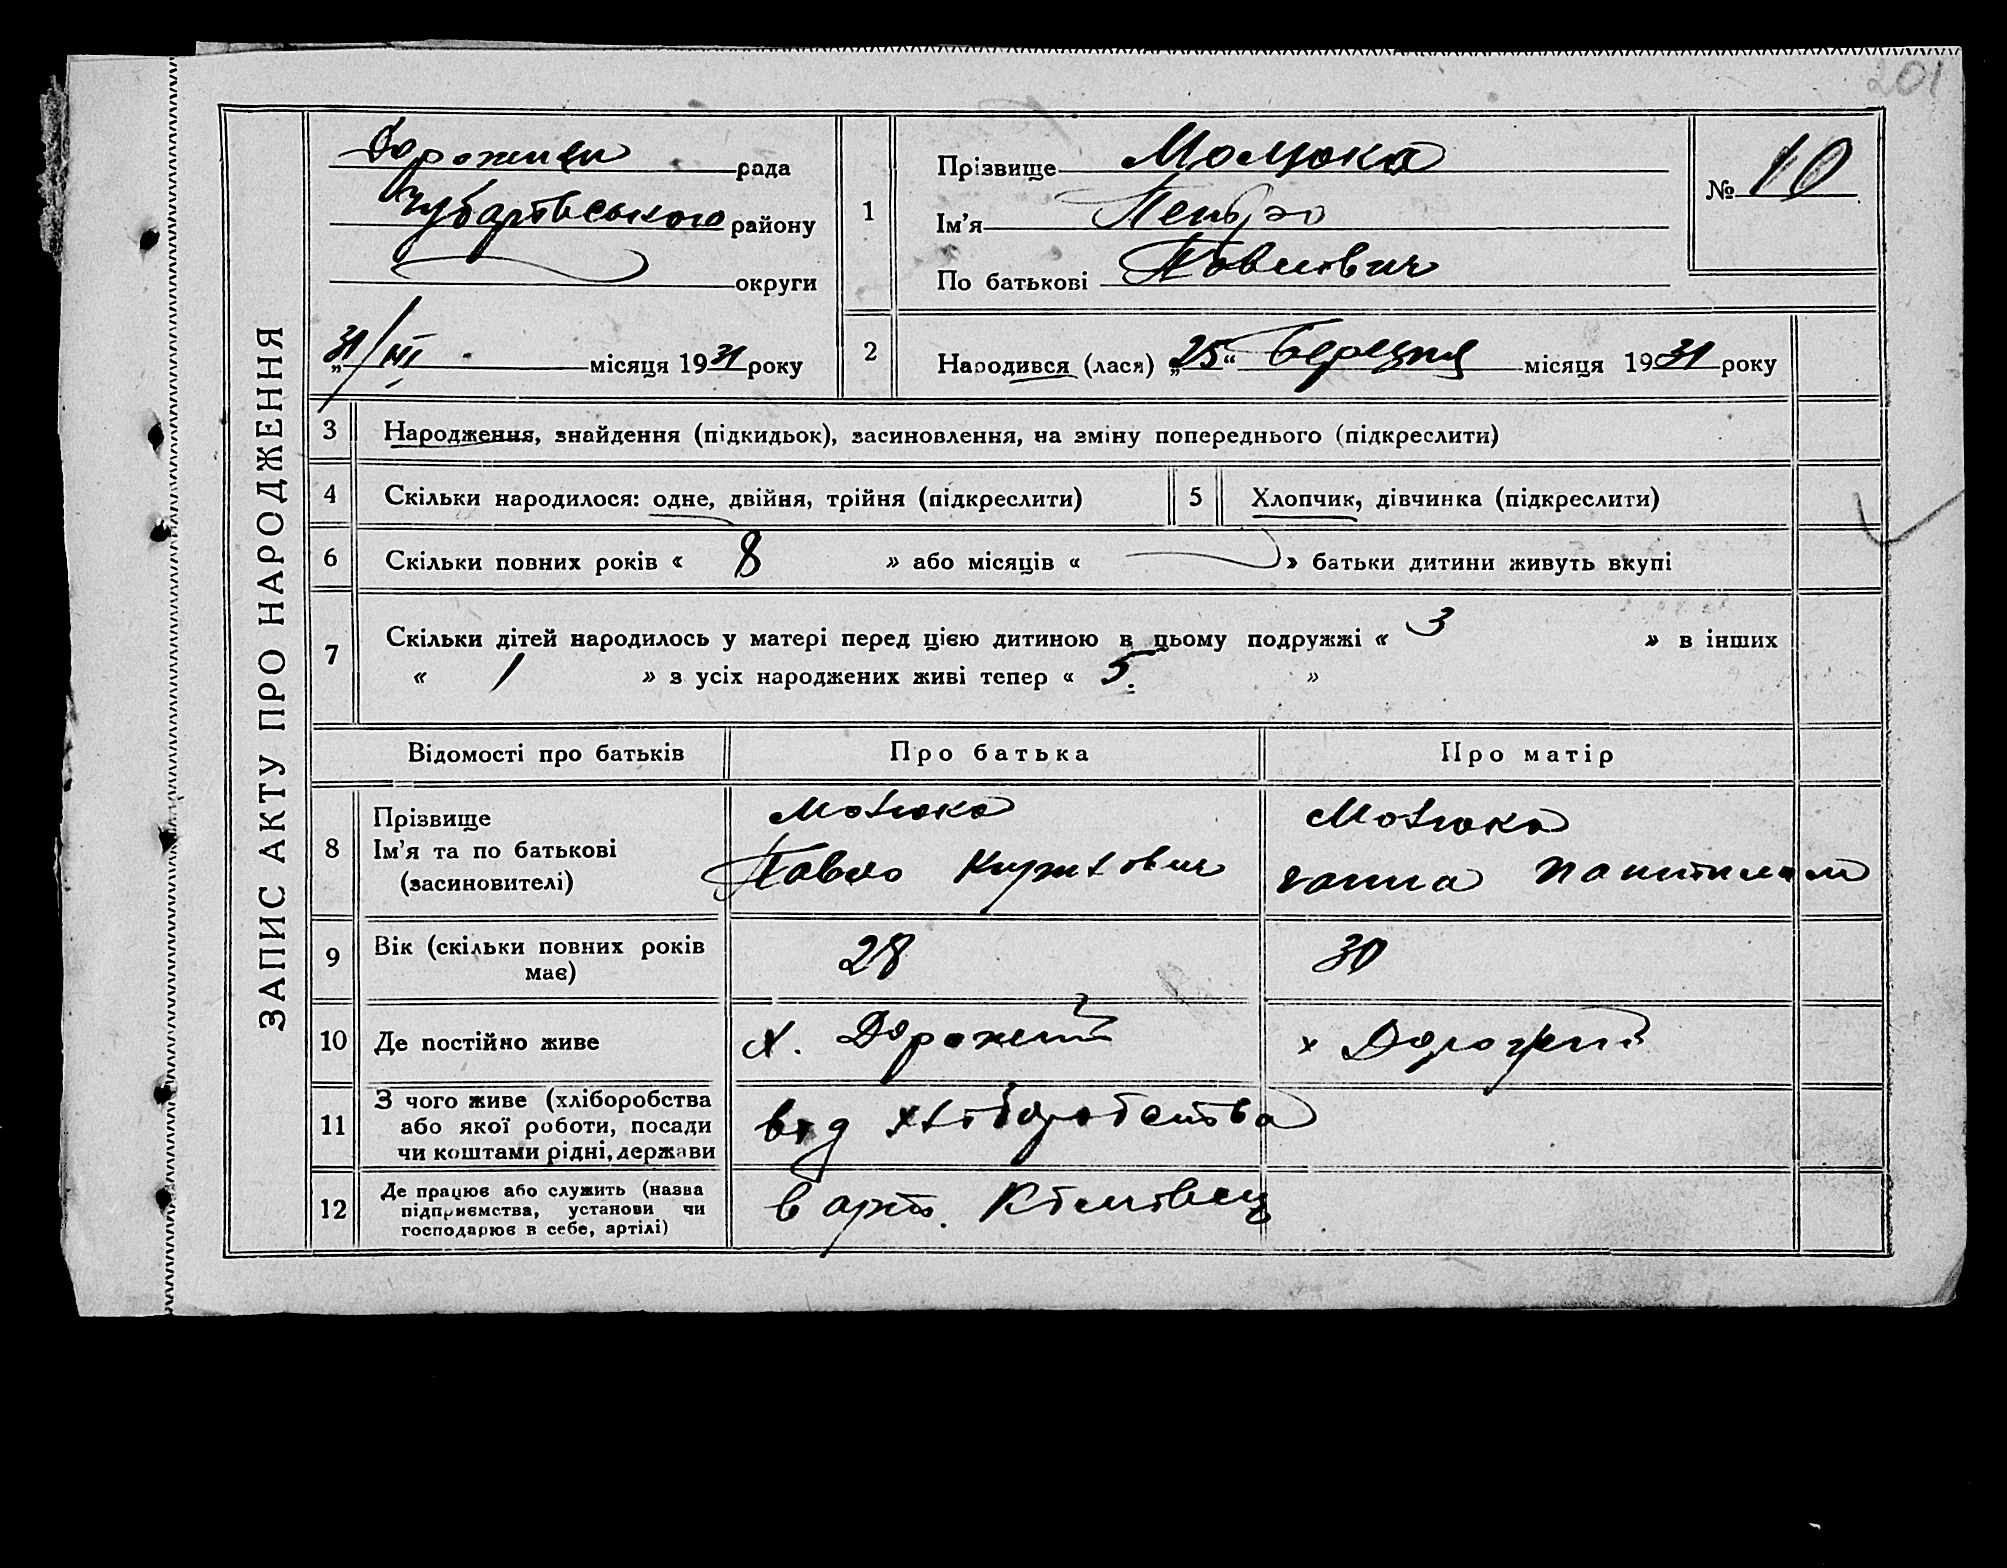 201
ЗАПИС АКТУ ПРО НАРОДЖЕННЯ
рада
Чубарівського району
округи
31/III місяця 1931 року
1
Прізвище Малюка
Ім'я Петро
По батькові Павлович
№ 10
2
Народився (лася) „25“ Березня місяця 1931 року
3
Народження, знайдення (підкидьок), засиновлення, на зміну попереднього (підкреслити)
4
Скільки народилося: одне, двійня, трійня (підкреслити)
5
Хлопчик, дівчинка (підкреслити)
6
Скільки повних років « 8 » або місяців « » батьки дитини живуть вкупі
7
Скільки дітей народилось у матері перед цією дитиною в цьому подружжі « 3 » в інших
« 1 » з усіх народжених живі тепер « 5 »
Відомості про батьків
Про батька
Про матір
8
Прізвище
Ім'я та по батькові
(засиновителі)
Малюка
Павло
Малюка
ганна
9
Вік (скільки повних років
має)
28
30
10
Де постійно живе
х. Дорожній
х Дорожній
11
З чого живе (хліборобства
або якої роботи, посади
чи коштами рідні, держави
від хліборобства
12
Де працює або служить (назва
підприємства, установи чи
господарює в себе, артілі)
в арт.